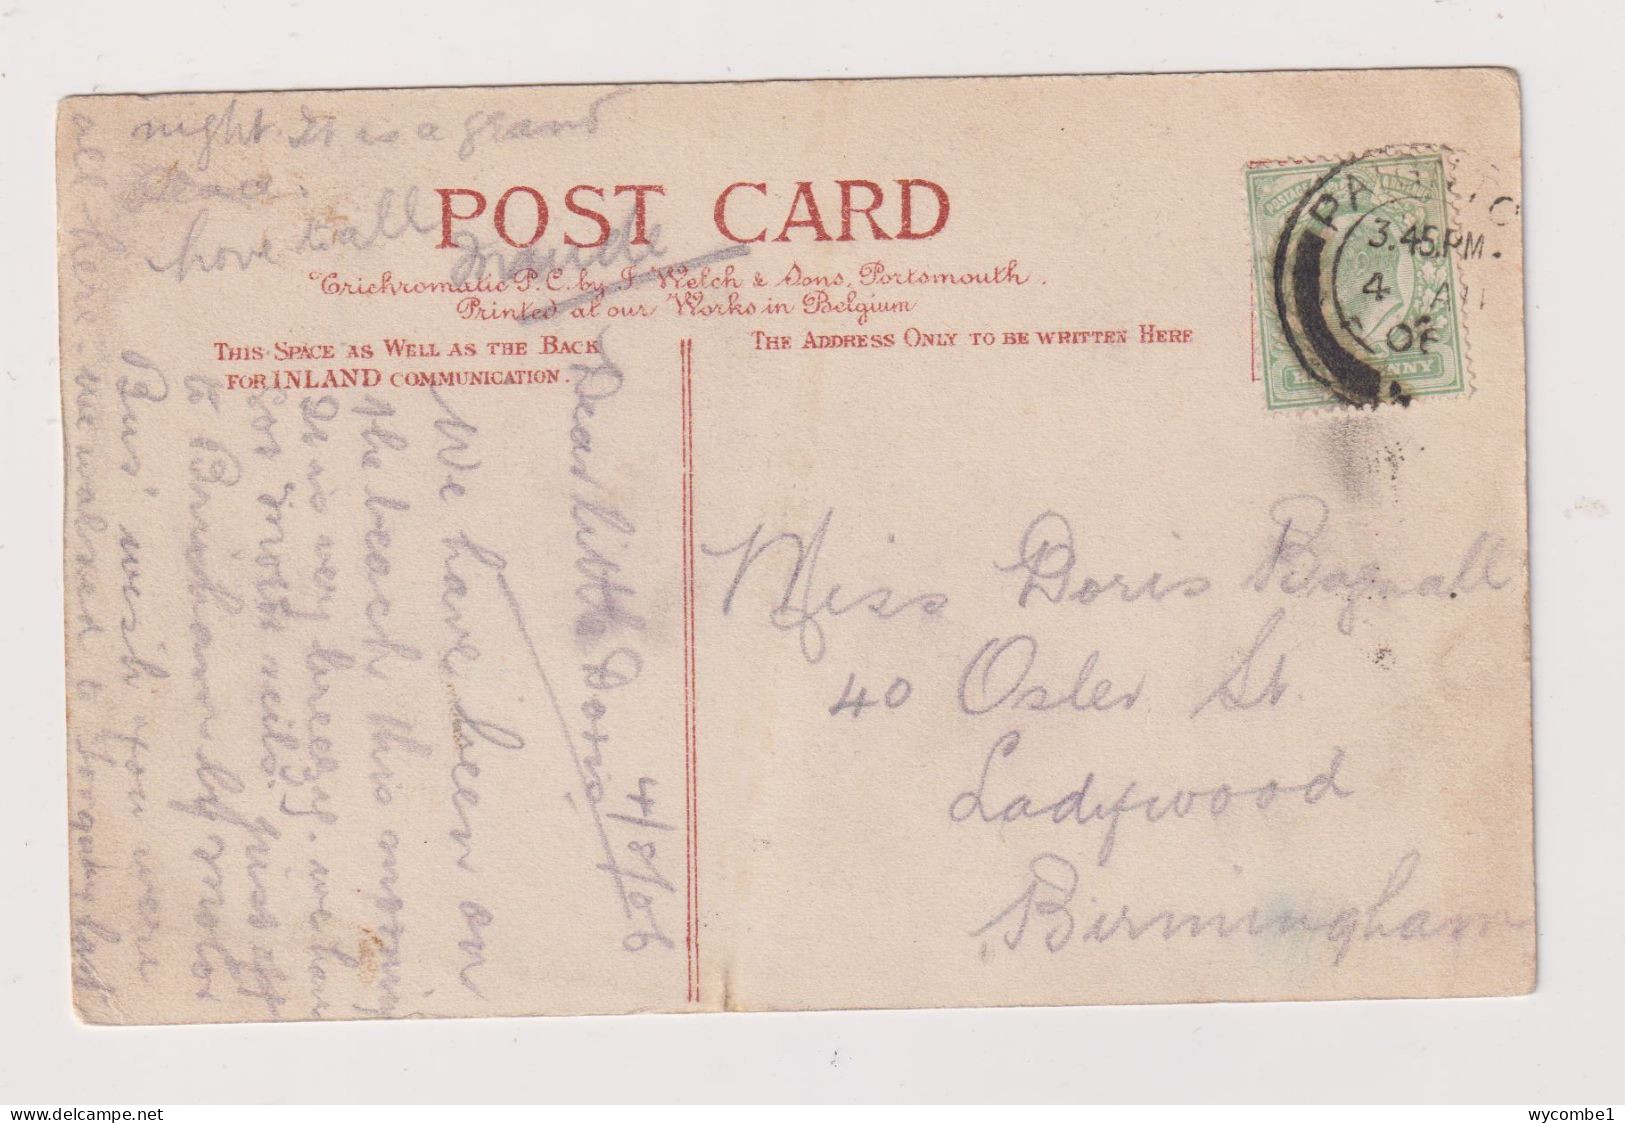 POST CARD
Trichromatic P.C. by F. Welch & Sons, Portsmouth.
Printed at our Works in Belgium
THIS SPACE AS WELL AS THE BACK
FOR INLAND COMMUNICATION.
THE ADDRESS ONLY TO BE WRITTEN HERE
3.45.PM.
4
06
POSTAGE
Miss Doris Bagnall
40 Osler St.
Ladywood
Birmingham
4/8/06
Dear little Doris
We have been on
the beach this morning
It is very breezy. we have
for miles. just
to by motor
Bus' wish you were
all here. we walked to last
night. It is a grand
Love to all
Maude
wycombe1
delcampe.net